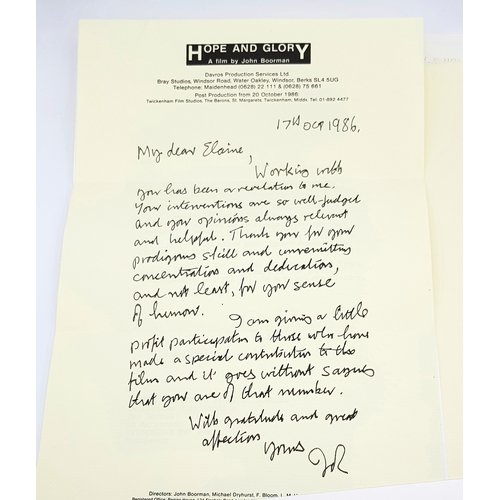 HOPE AND GLORY
A film by John Boorman
Davros Production Services Ltd
Bray Studios, Windsor Road, Water Oakley, Windsor, Berks SL4 5UG
Telephone: Maidenhead (0628) 22 111 & (0628) 75 661
Post Production from 20 October 1986:
Twickenham Film Studios, The Barons, St. Margarets, Twickenham, Middx. Tel: 01-892 4477
17th Oct 1986.
My dear Elaine,
Working with
you has been a revelation to me.
Your interventions are so well-judged
and your opinions always relevant
and helpful. Thank you for your
prodigious skill and unremitting
concentration and dedication,
and not least, for your sense
of humour.
I am giving a little
profit participation to those who have
made a special contribution to the
film and it goes without saying
that you are of that number.
With gratitude and great
affection
Yours
Directors: John Boorman, Michael Dryhurst, F. Bloom,